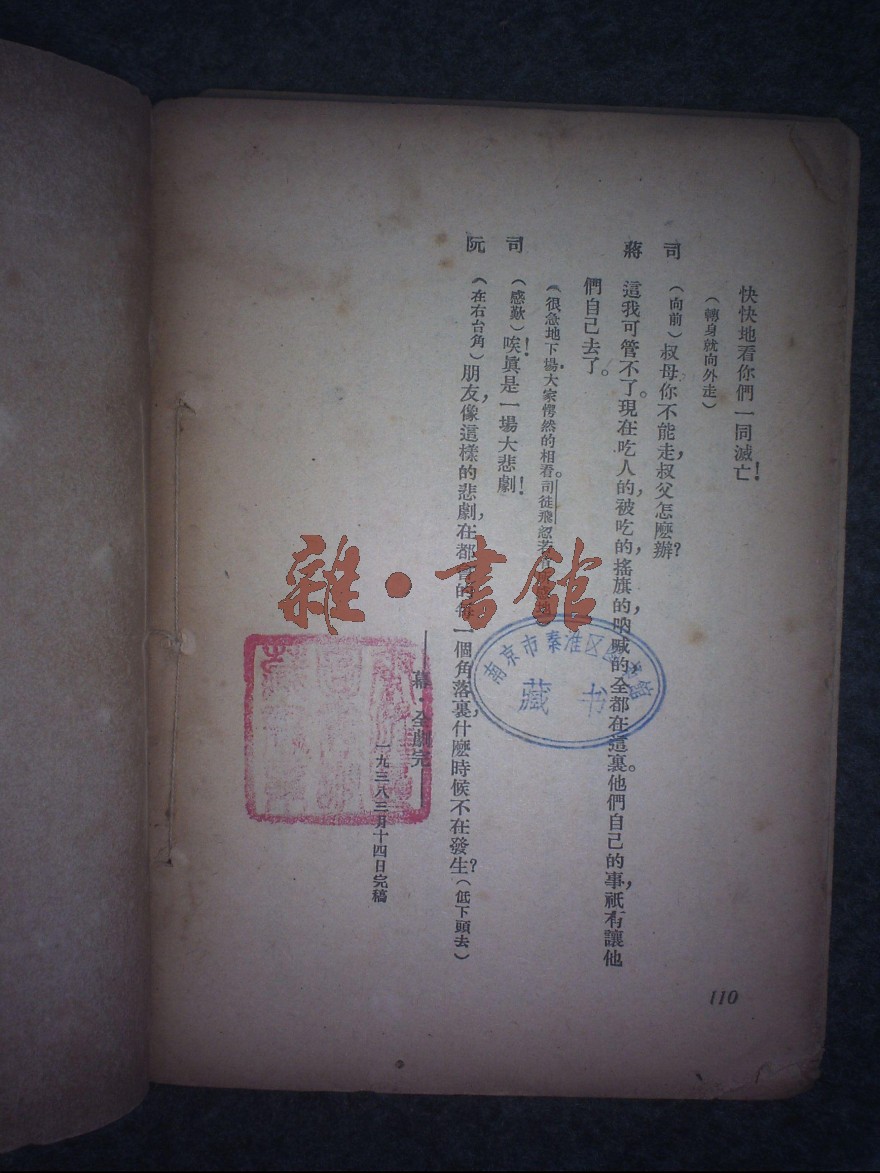 快快地看你們一同滅亡！
（轉身就向外走）
司 （向前）叔母你不能走，叔父怎麽辦？
蔣 這我可管不了。現在吃人的，被吃的，搖旗的，吶喊的全都在這裏。他們自己的事，祇有讓他
們自己去了。
（很急地下場大家愕然的相看。司徒飛
司 （感歎）唉！眞是一場大悲劇！
阮 （在右台角）朋友，像這樣的悲劇，在都會的每一個角落裏，什麽時候不在發生？（低下頭去）
——幕·全劇完——
一九三八三月十四日完稿
110
雜·書館
南京市秦淮区图书馆
藏书